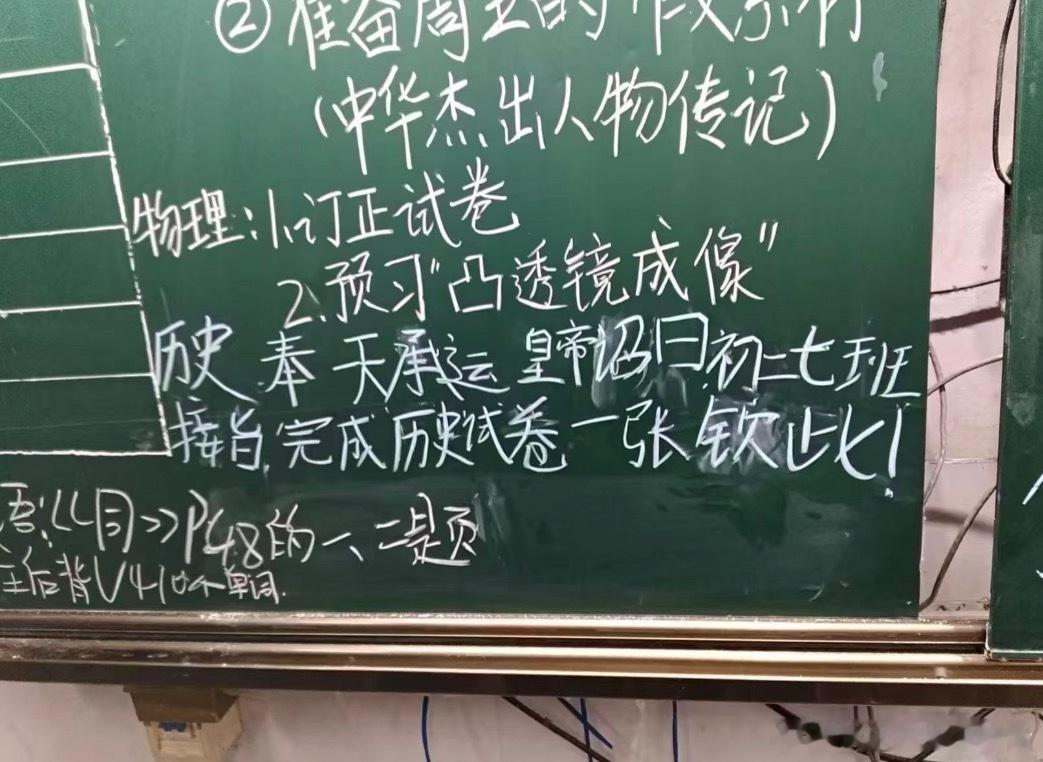 ②准备周五的作文素材
(中华杰出人物传记)
物理:1.订正试卷
2.预习"凸透镜成像"
历史 奉天承运 皇帝诏曰初二七班
接旨,完成历史试卷一张 钦此!
语:《同》P48的一、二题
后背U4 10个单词.